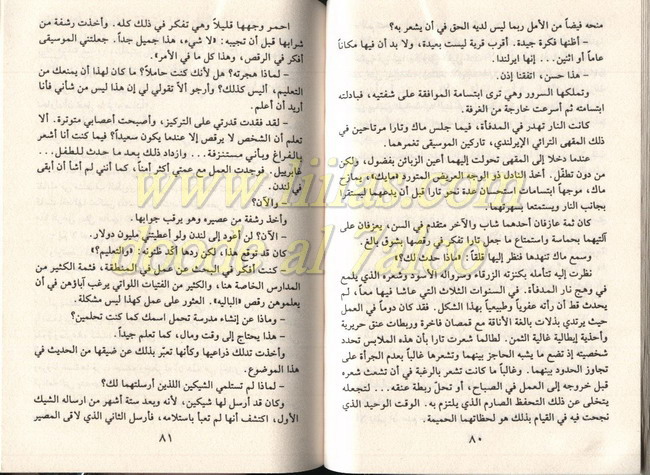 منحه فيضاً من الأمل ربما ليس لديه الحق في أن يشعر به؟
- أظنها فكرة جيدة. أقرب قرية ليست بعيدة، ولا بد أن فيها مكاناً
عاماً أو اثنين... إنها ايرلندا.
- هذا حسن، اتفقنا إذن.
وتملكها السرور وهي ترى ابتسامة الموافقة على شفتيه، فبادلته
ابتسامته ثم أسرعت خارجة من الغرفة.
كانت النار تهدر في المدفأة، فيما جلس ماك وتارا مرتاحين في
ذلك المقهى التراثي الإيرلندي، تاركين الموسيقى تغمرهما.
عندما دخلا إلى المقهى تحولت إليهما أعين الزبائن بفضول، ولكن
من دون تطفل. أخذ النادل ذو الوجه العريض المتورد «مايك»، يمازح
ماك، موجهاً ابتسامات استحسان عدة نحو تارا قبل أن يدعهما ليستقرا
بجانب النار ويستمتعا بسهرتهما.
كان ثمة عازفان أحدهما شاب والآخر متقدم في السن، يعزفان على
آلتيهما بحماسة واستمتاع ما جعل تارا تفكر في رقصها بشوق بالغ.
وسمع ماك تنهدها فنظر إليها قلقاً: «ماذا حدث لك؟»
نظرت إليه تتأمله بكنزته الزرقاء وسرواله الأسود وشعره الذي يلمع
في وهج نار المدفأة. في السنوات الثلاث التي عاشا فيها معاً، لم
يحدث قط أن رأته عفوياً وطبيعياً بهذا الشكل. فقد كان دوماً في العمل
حيث يرتدي بذلات بالغة الأناقة مع قمصان فاخرة وربطات عنق حريرية
وأحذية إيطالية غالية الثمن. لطالما شعرت تارا بأن هذه الملابس تحدد
شخصيته إذ تضع ما يشبه الحاجز بينهما وتشعرها غالباً بعدم الجرأة على
تجاوز الحدود بينهما. وغالباً ما كانت تشعر بالرغبة في أن تشعث شعره
قبل خروجه إلى العمل في الصباح، أو تحلّ ربطة عنقه... لتجعله
يتخلى عن ذلك التحفظ الصارم الذي يلتزم به. الوقت الوحيد الذي
نجحت فيه في القيام بذلك هو لحظاتهما الحميمة.
٨٠
احمر وجهها قليلاً وهي تفكر في ذلك كله. وأخذت رشفة من
شرابها قبل أن تجيبه: «لا شيء، هذا جميل جداً. جعلتني الموسيقى
أفكر في الرقص، وهذا كل ما في الأمر».
- لماذا هجرته؟ هل لأنك كنت حاملاً؟ ما كان لهذا أن يمنعك من
التعليم، أليس كذلك؟ وأرجو ألا تقولي لي إن هذا ليس من شأني فأنا
أريد أن أعلم.
- لقد فقدت قدرتي على التركيز، وأصبحت أعصابي متوترة. ألا
تعلم أن الشخص لا يرقص إلا عندما يكون سعيداً؟ فيما كنت أنا أشعر
بالفراغ وبأني مستنزفة... وازداد ذلك بعد ما حدث للطفل...
غابرييل. فوجدت العمل مع عمتي أكثر أمناً، كما أنني لم أشأ أن أبقى
في لندن.
- والآن؟
وأخذ رشفة من عصيره وهو يرقب جوابها.
- الآن؟ لن أعود إلى لندن ولو أعطيتني مليون دولار.
كان قد توقع هذا، لكن ردها أكد ظنونه. «والتعليم؟»
- كنت أفكر في البحث عن عمل في المنطقة، فثمة الكثير من
المدارس الخاصة هنا، والكثير من الفتيات اللواتي يرغب آباؤهن في أن
يعلموهن رقص «الباليه». العثور على عمل كهذا ليس مشكلة.
- وماذا عن إنشاء مدرسة تحمل اسمك كما كنت تحلمين؟
- هذا يحتاج إلى وقت ومال، كما تعلم جيداً.
وأخذت تدلك ذراعيها وكأنها تعبّر بذلك عن ضيقها من الحديث في
هذا الموضوع.
- لماذا لم تستلمي الشيكين اللذين أرسلتهما لك؟
وكان قد أرسل لها شيكين، لأنه وبعد ستة أشهر من ارساله الشيك
الأول، اكتشف أنها لم تعبأ باستلامه، فأرسل الثاني الذي لاقى المصير
٨١
www.liilas.com